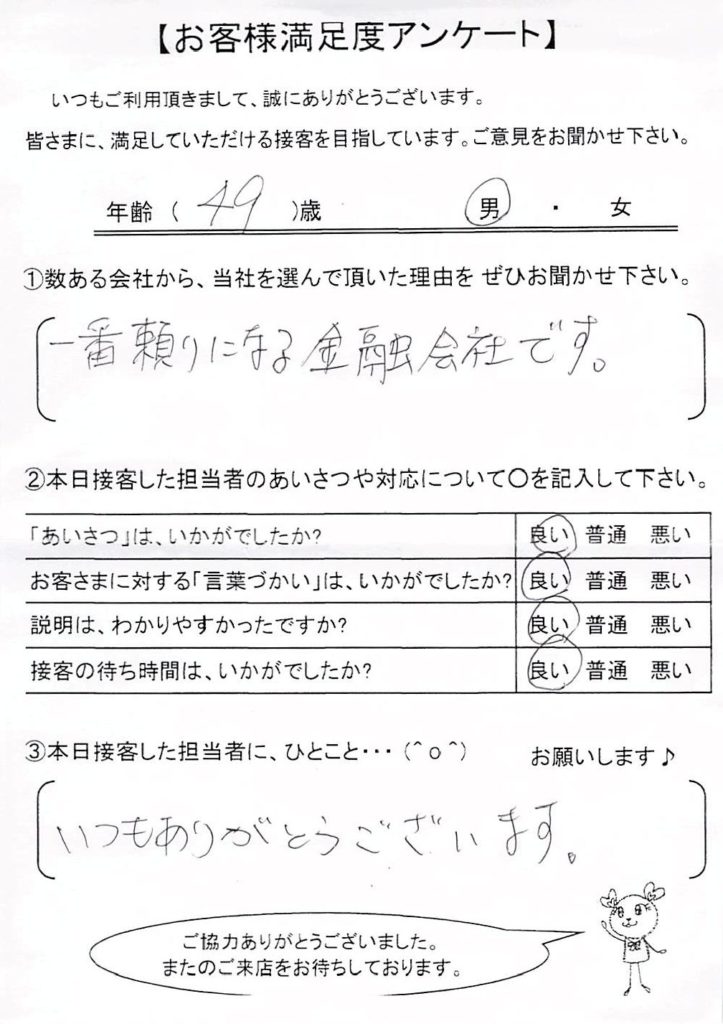 【お客様満足度アンケート】
いつもご利用頂きまして、誠にありがとうございます。
皆さまに、満足していただける接客を目指しています。ご意見をお聞かせ下さい。
年齢 ( 49 )歳 男 ・ 女
①数ある会社から、当社を選んで頂いた理由を ぜひお聞かせ下さい。
一番頼りになる金融会社です。
②本日接客した担当者のあいさつや対応について〇を記入して下さい。
「あいさつ」は、いかがでしたか? 良い 普通 悪い
お客さまに対する「言葉づかい」は、いかがでしたか? 良い 普通 悪い
説明は、わかりやすかったですか? 良い 普通 悪い
接客の待ち時間は、いかがでしたか? 良い 普通 悪い
③本日接客した担当者に、ひとこと・・・ (^o^) お願いします♪
いつもありがとうございます。
ご協力ありがとうございました。
またのご来店をお待ちしております。